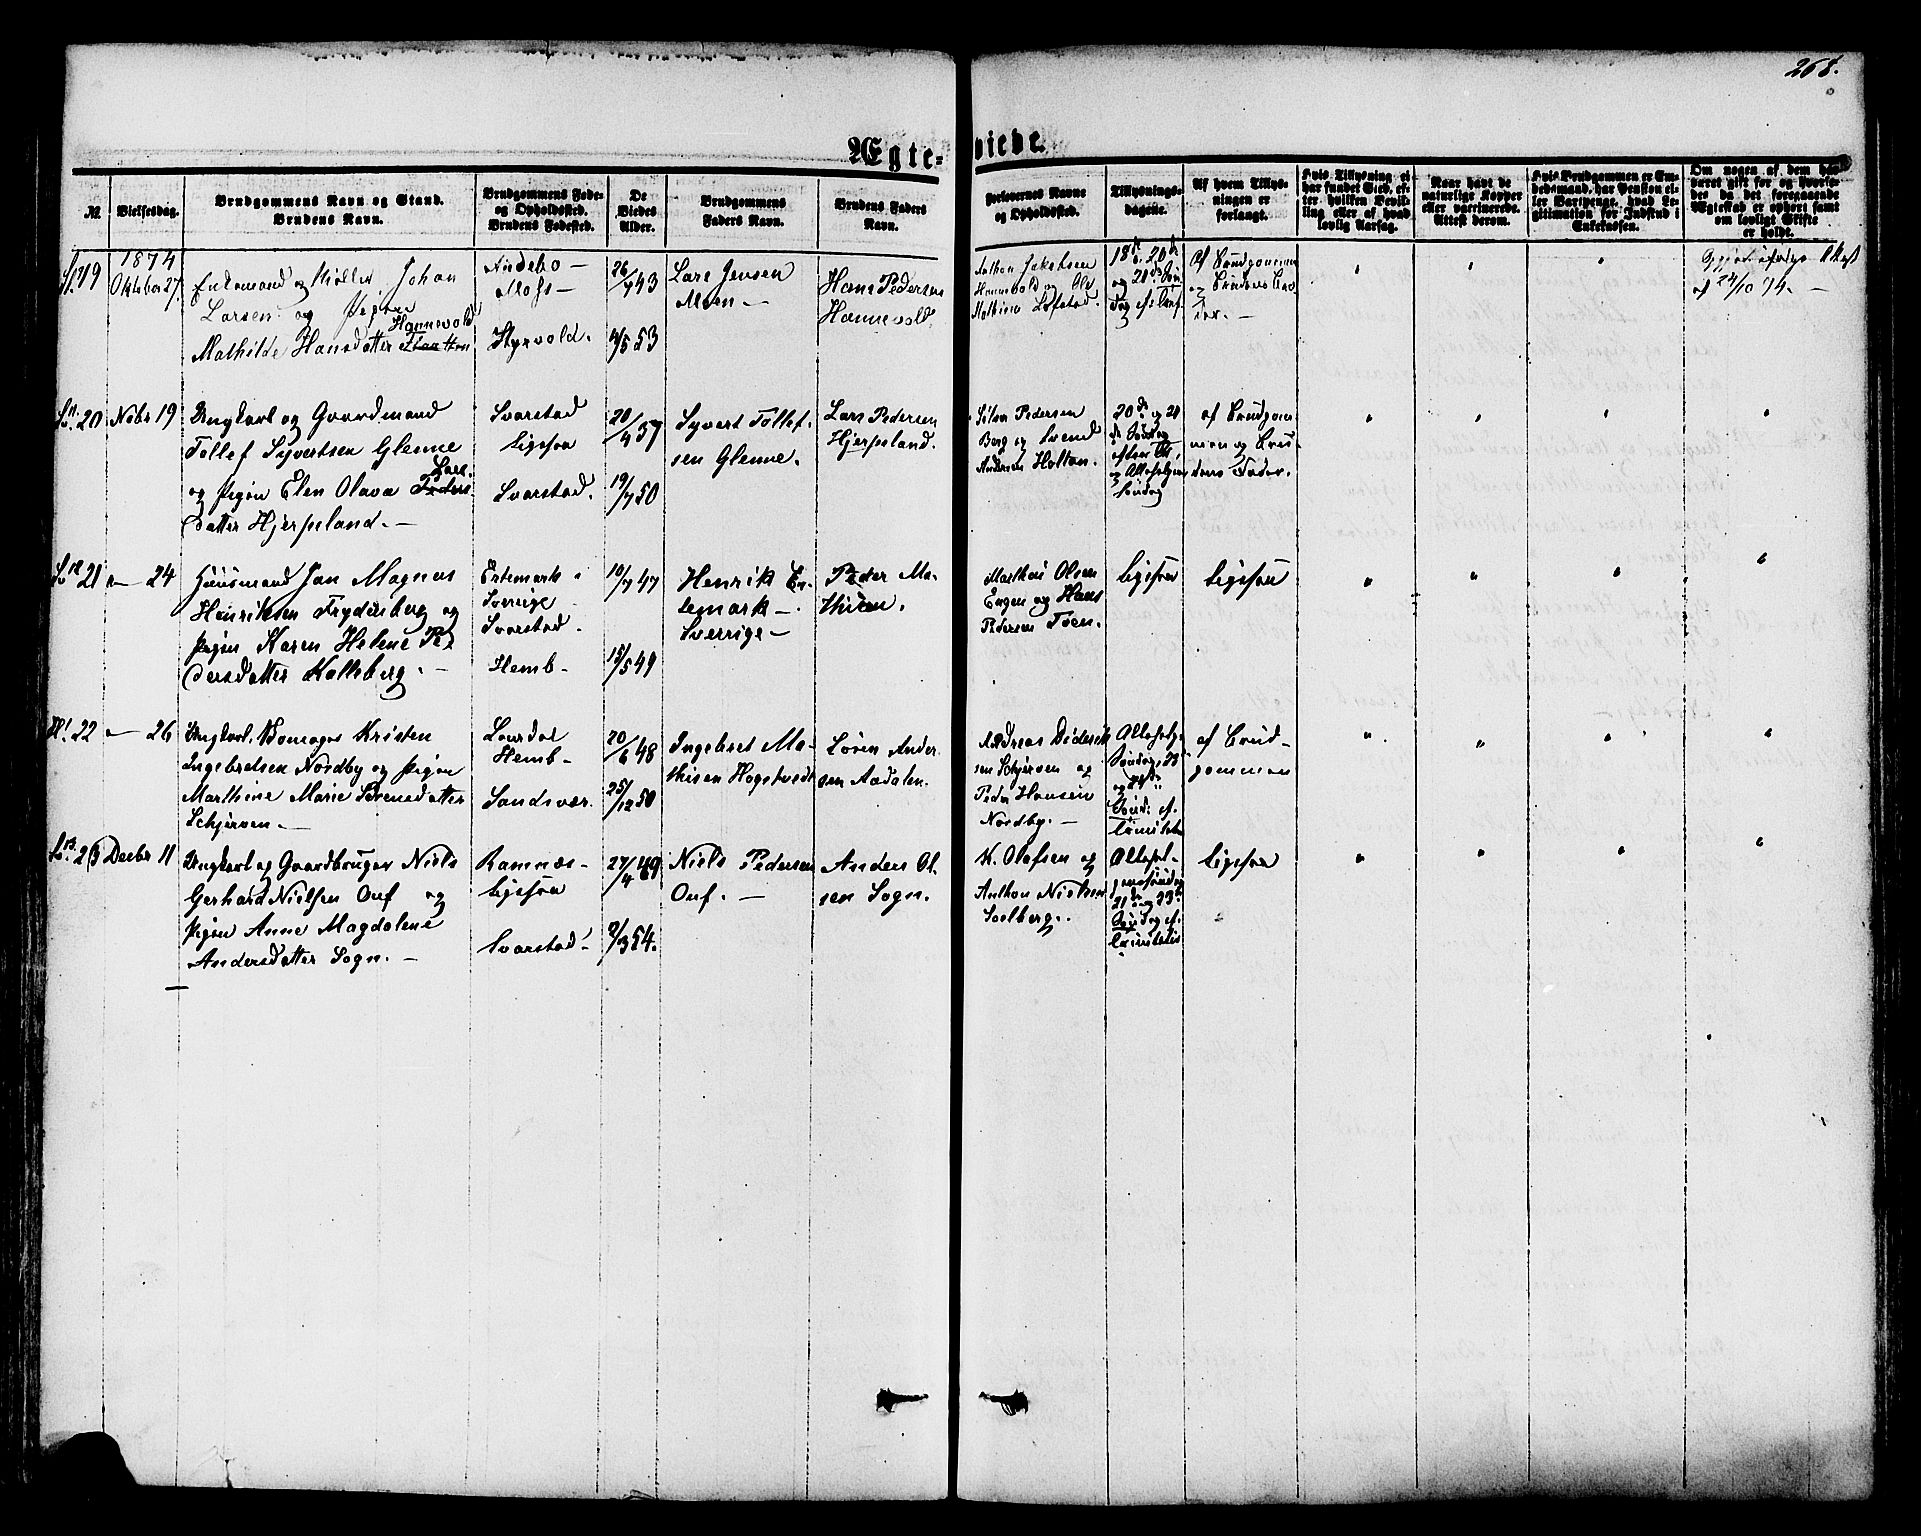 268.
Ægte-
viede.
№
Vielsesdag.
Brudgommens Navn og Stand.
Brudens Navn.
Brudgommens Føde-
og Opholdssted.
Brudens Fødested.
De
Viedes
Alder.
Brudgommens
Faders Navn.
Brudens Faders
Navn.
Forlovernes Navne
og Opholdssted.
Tillysnings-
dagene.
Af hvem Tillys-
ningen er
forlangt.
Hvis Tillysning ei
har fundet Sted, ef-
ter hvilken Bevil-
ling eller af hvad
lovlig Aarsag.
Naar havt de
naturlige Kopper
eller vaccinerede.
Attest derom.
Hvis Brudgommen er Em-
bedsmand, har Pension el-
ler Vartpenge, hvad Le-
gitimation for Indskud i
Enkekassen.
Om nogen af dem har
været gift før og hvorle-
des da det foregaaende
Ægteskab er ophørt samt
om lovligt Skifte
er holdt.
1874
19
Oktober 27.
Enkemand og Møller Johan
Larsen og Pigen
Hannevold
Mathilde Hansdatter
Andebo -
Moss -
Styrvold.
26/7 43
4/5 53
Lars Jensen
Moen -
Hans Pedersen
Hannevold.
Anthon Jakobsen
Hannevold og Ole
Mathisen Løfstad.
18de, 20de
og 21de Søn-
dag ef: Tref.
Af Brudgommen
og Brudens Bro-
der. -
af 24/10 74. -
20
Novbr 19
Ungkarl og Gaardmand
Tollef Syvertsen Glenne
Lars
og Pigen Elen Olava Peders
datter Hjerpeland. -
Svarstad
ligesaa
Svarstad.
20/4 37
19/7 50
Syvert Tollef-
sen Glenne.
Lars Pedersen
Hjerpeland.
Pedersen
Berg og Svend
Andersen Holtan.
20de og 21
de Søndag
efter Tr.
og Allehelgens
Søndag
af Brudgom-
men og Bru-
dens Fader.
21
- 24
Huusmand Jan Magnus
Henriksen Frydensberg og
Pigen Karen Helene Pe-
dersdatter Kalleberg. -
Ertemark i
Sverige
Svarstad.
Hemb -
10/7 47
15/5 49
Henrik Er-
temark -
Sverrige -
Peder Ma-
thisen.
Mathias Olsen
Engen og Hans
Pedersen Toen.
ligesaa
ligesaa
22
- 26
Ungkarl. Kristen
Ingebretsen Nordby og Pigen
Marthine Marie Sørensdatter
Schjerven. -
Laurdal
Hemb -
Sandsvær.
20/6 48
25/12 50
Ingebret Ma-
thisen Hogstvedt
Søren Ander-
sen Aadalen.
Andreas Diderik
sen Schjerven og
Peder Hansen
Nordby. -
Allehelg.
Søndag, 23
og 24de
Sønd: ef.
Trinitatis
af Brud-
gommen
23
Decbr 11
Ungkarl og Gaardbruger Niels
Gerhard Nielsen Ouf og
Pigen Anne Magdalene
Andersdatter Sogn. -
Ramnæs
ligesaa
Svarstad.
27/4 49
2/3 54.
Niels Pedersen
Ouf. -
Anders Ol-
sen Sogn.
K. Olafsen og
Anthon Nielsen
Solberg.
Allehel-
gensøndag
21de og 23de
Søndag ef.
Trinitatis
ligesaa